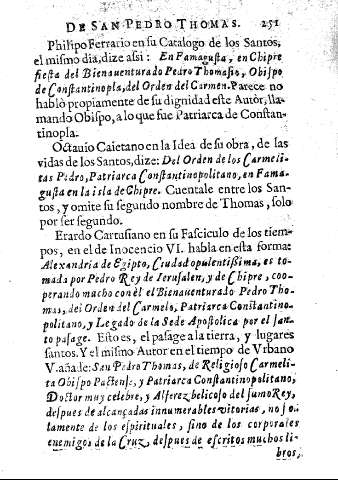 DE SAN PEDRO THOMAS. 251
Philipo Ferrario en su Catalogo de los Santos,
el mismo dia, dize assi: En Famagusta, en Chipre
fiesta del Bienauenturado Pedro Thomasio, Obispo
de Constantinopla, del Orden del Carmen. Parece no
habló propiamente de su dignidad este Autòr, lla-
mando Obispo, a lo que fue Patriarca de Constan-
tinopla.
Octauio Caietano en la Idea de su obra, de las
vidas de los Santos, dize: Del Orden de los Carmeli-
tas Pedro, Patriarca Constantinopolitano, en Fama-
gusta en la isla de Chipre. Cuentale entre los San-
tos, y omite su segundo nombre de Thomas, solo
por ser segundo.
Erardo Cartusiano en su Fasciculo de los tiem-
pos, en el de Inocencio VI. habla en esta forma:
Alexandria de Egipto, Ciudad opulentissima, es to-
mada por Pedro Rey de Ierusalen, y de Chipre, coo-
perando mucho con èl el Bienauenturado Pedro Tho-
mas, del Orden del Carmelo, Patriarca Constantino-
politano, y Legado de la Sede Apostolica por el san-
to pasage. Esto es, el pasage a la tierra, y lugares
santos. Y el mismo Autor en el tiempo de Vrbano
V. añade: San Pedro Thomas, de Religioso Carmeli-
ta Obispo Pactense, y Patriarca Constantinopolitano,
Doctor muy celebre, y Alferez belicoso del sumo Rey,
despues de alcançadas innumerables vitorias, no so-
lamente de los espirituales, sino de los corporales
enemigos de la Cruz, despues de escritos muchos li-
bros,